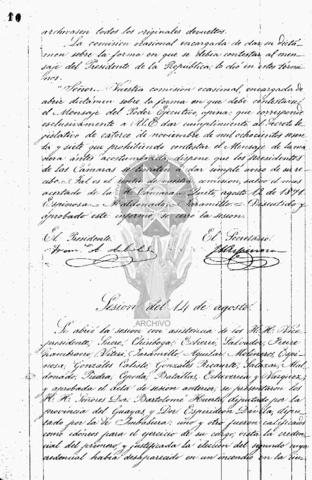 10
archivasen todos los originales devueltos.
La comision ocasional encargada de dar su dictá-
men sobre la forma en que se debia contestar al men-
saje del Presidente de la Republica, lo dió en estos térmi-
nos.
"Señor. Vuestra comision ocasional, encargada de
abrir dictámen sobre la forma en que debe contestarse
el Mensaje del Poder Ejecutivo, opina: que corresponde
esclusivamente a V.E. dar cumplimiento al decreto le-
jislativo de catorce de noviembre de mil ochocientos
y siete que prohibiendo contestar el Mensaje de la ma-
nera antes acostumbrada, dispone que los Presidentes
de las Cámaras se limiten a dar simple aviso de su re-
cibo. Tal es el dictámen de vuestra comision, salvo el mas
acertado de la H. Cámara. Quito, agosto 12 de 1871.
Espinosa. Maldonado. Jaramillo. Discutido y
aprobado este informe, se cerró la sesion.
El Presidente. El Secretario.
Sesion del 14 de agosto.
ARCHIVO
Se abrió la sesion con asistencia de los H.H. Vice-
presidente, Sucre, Chiriboga, Salvador, Freire
Zambrano, Viteri, Jaramillo, Aguilar, Molineros, Espi-
nosa, Gonzales Calisto, Gonzales Ricaurte, Salazar, Mal-
donado, Piedra, Cepeda, Echeverria y Vazquez,
y aprobada el acta de sesion anterior, se presentaron los
H.H. Señores Don Bartolomé Huerta, diputado por la
provincia del Guayas y Don Espiridion Dávila, dipu-
tado por la de Imbabura; uno y otro fueron calificados
como idóneos para el ejercicio de su cargo, vista la creden-
cial del primero, y justificada la eleccion del segundo cuya
credencial habia desaparecido en un incendio en la ciu-